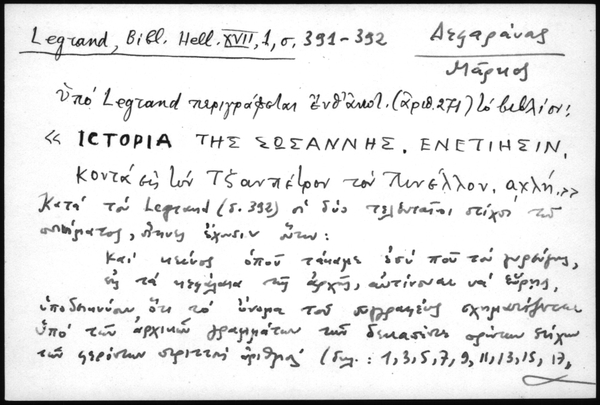 Legrand, Bibl. Hell. XVII, 1, σ. 391-392
Δεφαράνας
Μάρκος
Ὑπό Legrand περιγράφεται ἐνθ' ἀνωτ. (ἀριθ. 271) τό βιβλίον:
« ΙϹΤΟΡΙΑ ΤΗΣ ΣΩΣΑΝΝΗΣ. ΕΝΕΤΙΗΣΙΝ,
Κοντά εἰς τόν Τζανπέτρον τόν Πινέλλον. αχλή.»
Κατά τόν Legrand (σ. 392) οἱ δύο τελευταῖοι στίχοι τοῦ
ποιήματος, οἵτινες ἔχουσιν οὕτω:
Καί κεῖνος ὁποῦ τἄκαμε ἐσύ ποῦ τόν γυρεύγης,
εἰς τά κεφάλαια τῆς ἀρχῆς, αὐτίνονται νά εὕρῃς,
ὑποδεικνύουν, ὅτι τό ὄνομα τοῦ συγγραφέως σχηματίζεται
ὑπό τῶν ἀρχικῶν γραμμάτων τῶν δεκαπέντε πρώτων στίχων
τῶν φερόντων περιττόν ἀριθμόν (δηλ.: 1, 3, 5, 7, 9, 11, 13, 15, 17,